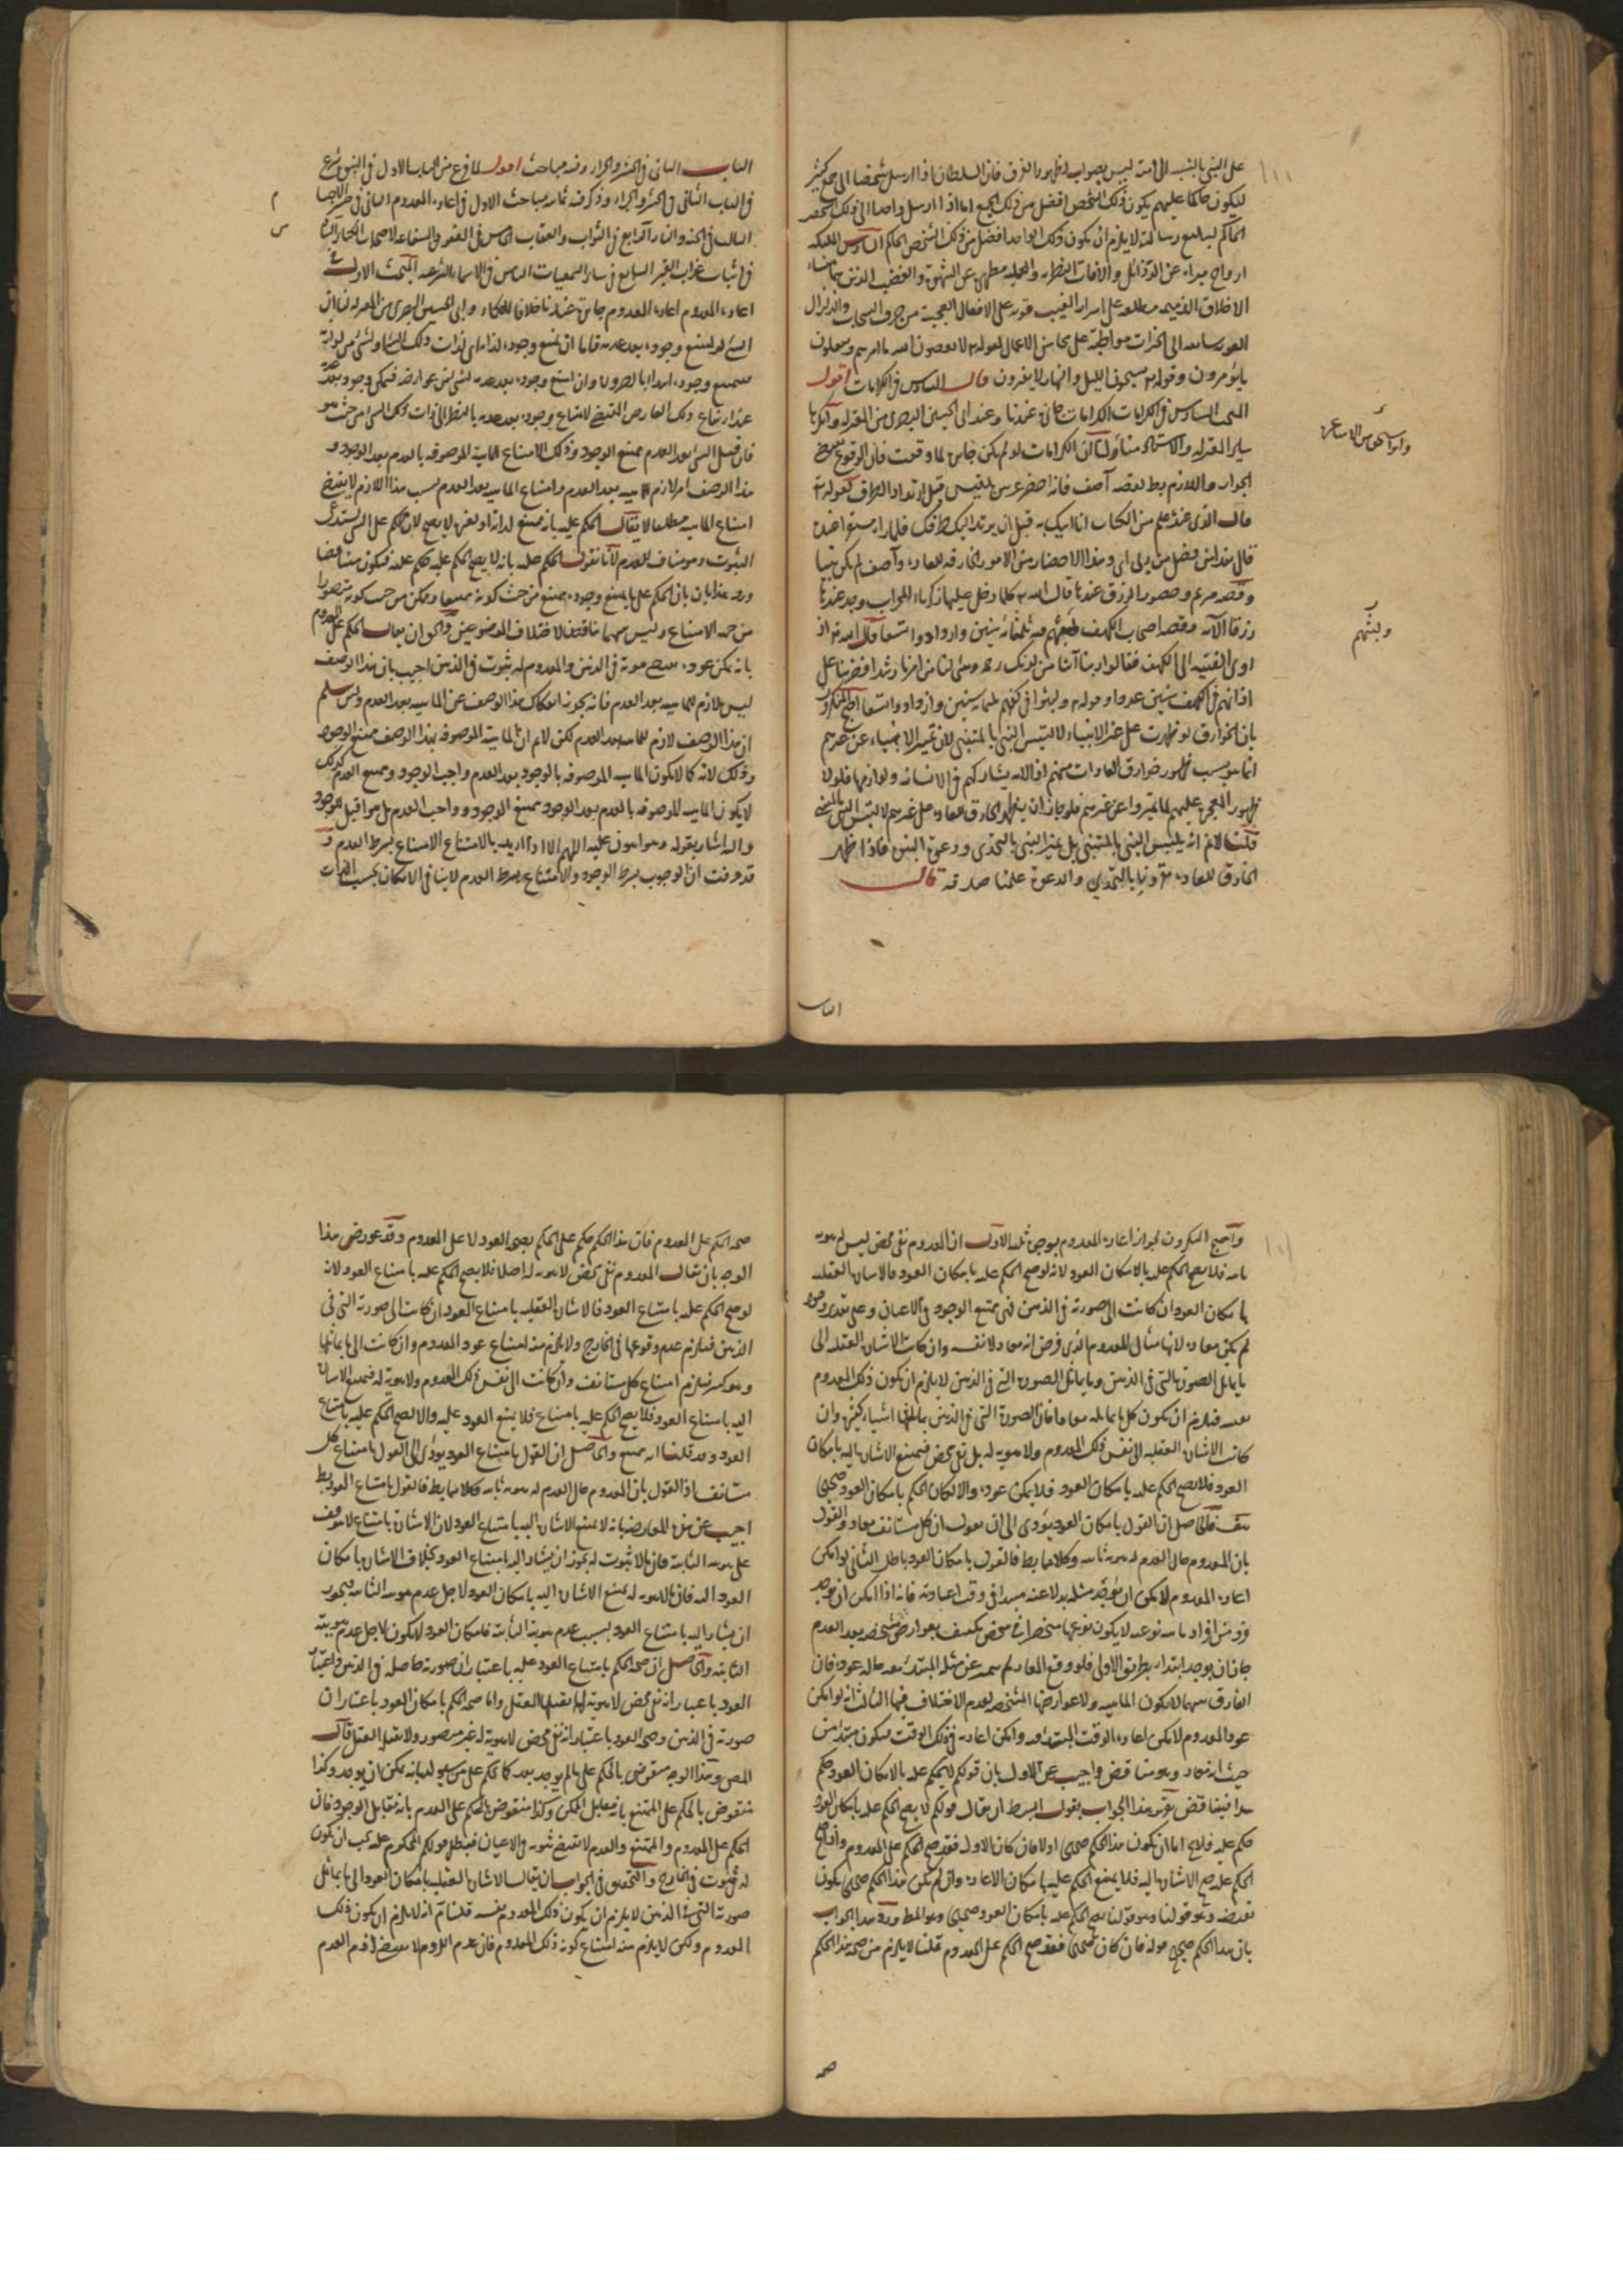 على النبي بالنسبة الى امته ليس بصواب لظهور الفرق فان السلطان اذا ارسل شخصا الى جمع كثير
ليكون حاكما عليهم يكون ذلك الشخص افضل من ذلك الجمع اما اذا ارسل واحدا الى ذلك الشخص
الحاكم لتبليغ رسالته لا يلزم ان يكون ذلك الواحد افضل من ذلك الشخص الحاكم السادس الملئكة
ارواح مبراة عن الرذائل والافات النظرية والعملية مطهرة عن الشهوة والغضب الذين هما منشاء
الاخلاق الذميمة مطلعة على اسرار الغيب قوية على الافعال العجيبة من تصريف السحاب والزلزال
القوية سابقة الى الخيرات مواظبة على محاسن الاعمال لقوله لا يعصون الله ما امرهم ويفعلون
ما يؤمرون وقوله يسبحون الليل والنهار لا يفترون قال السادس في الكرامات اقول
المبحث السادس في الكرامات الكرامات جائزة عندنا وعند ابي الحسين البصري من المعتزلة وانكرها
سائر المعتزلة والاستاذ منا لنا ان الكرامات لو لم تكن جائزة لما وقعت فان الوقوع
الجواز واللازم بط لقصة آصف فانه احضر عرش بلقيس قبل ارتداد الطرف لقوله
قال الذي عنده علم من الكتاب انا آتيك به قبل ان يرتد اليك طرفك فلما رآه مستقرا عنده
قال هذا من فضل ربي وهذا الاحضار من الامور الخارقة للعادة وآصف لم يكن نبيا
وقصة مريم وحضور الرزق عندها قال الله كلما دخل عليها زكريا المحراب وجد عندها
رزقا الآية وقصة اصحاب الكهف ثلثمائة سنين وازدادوا تسعا قال الله اذ
اوى الفتية الى الكهف فقالوا ربنا آتنا من لدنك رحمة وهيئ لنا من امرنا رشدا فضربنا على
اذانهم في الكهف سنين عددا وقوله ولبثوا في كهفهم ثلثمائة سنين وازدادوا تسعا احتج المنكرون
بان الخوارق لو ظهرت على غير الانبياء لالتبس النبي بالمتنبي لان تميز الانبياء عن غيرهم
انما هو بسبب ظهور خوارق العادات منهم اذ الامة يشاركهم في الانسانية ولوازمها فلولا
ظهور المعجزة عليهم لما تميزوا عن غيرهم فلو جاز ان يظهر الخارق للعادة على غيرهم لالتبس النبي بالمتنبي
قلت لا نم انه يلتبس النبي بالمتنبي بل يتميز النبي بالتحدي ودعوى النبوة فاذا ظهر
الخارق للعادة مقرونا بالتحدي والدعوة علمنا صدقه قال
الباب
الباب الثاني في الحشر والجزاء وفيه مباحث اقول لما فرغ من الباب الاول في النبوة شرع
في الباب الثاني في الحشر والجزاء وذكر فيه ثمانية مباحث الاول في اعادة المعدوم الثاني في حشر الاجساد
الثالث في الجنة والنار الرابع في الثواب والعقاب الخامس في العفو والشفاعة لاصحاب الكبائر السادس
في اثبات عذاب القبر السابع في سائر السمعيات الثامن في الاسماء الشرعية المبحث الاول في
اعادة المعدوم اعادة المعدوم جائزة عندنا خلافا للحكماء وابي الحسين البصري من المعتزلة لنا ان
الشيء لو امتنع وجوده بعد عدمه فاما ان يمتنع وجوده لذاته اي لذات ذلك الشيء او لشيء من لوازمه
فيمتنع وجوده ابتداء بالضرورة وان امتنع وجوده بعد عدمه لشيء من عوارضه فيمكن وجوده بعده
عند ارتفاع ذلك العارض المقتضي لامتناع وجوده بعد عدمه بالنظر الى ذات ذلك الشيء من حيث هو
فان قيل الشيء بعد العدم ممتنع الوجود وذلك الامتناع للماهية الموصوفة بالعدم بعد الوجود و
هذا الوصف امر لازم للماهية بعد العدم وامتناع الماهية بعد العدم بسبب هذا اللازم لا يقتضي
امتناع الماهية مطلقا لا يقال الحكم عليه بانه ممتنع لذاته او لغيره لا يصح لان الحكم على الشيء يستدعي
الثبوت وهو مناف للعدم لانا نقول الحكم عليه بانه لا يصح الحكم عليه حكم عليه فيكون متناقضا
ورد هذا بان الحكم على ما يمتنع وجوده ممتنع من حيث كونه ممتنعا وممكن من حيث كونه متصورا
من جهة الامتناع وليس بينهما تناقض لاختلاف الموضوعين والحق ان يقال الحكم على المعدوم
بانه يمكن عوده يصح في الذهن والمعدوم له ثبوت في الذهن اجيب بان هذا الوصف
ليس بلازم للماهية بعد العدم فانه يجوز انفكاك هذا الوصف عن الماهية بعد العدم ولئن سلم
ان هذا الوصف لازم للماهية بعد العدم لكن لا نم ان الماهية الموصوفة بهذا الوصف ممتنع الوجود
وذلك لانه كما لا يكون الماهية الموصوفة بالوجود بعد العدم واجب الوجود وممتنع العدم كذلك
لا يكون الماهية الموصوفة بالعدم بعد الوجود ممتنع الوجود وواجب العدم بل هو اقبل للوجود
واليه اشار بقوله وهو اهون عليه اللهم الا اذا اريد بالامتناع الامتناع بشرط العدم و
قد عرفت ان الوجوب بشرط الوجود والامتناع بشرط العدم لا ينافي الامكان بحسب الذات
واحتج المنكرون لجواز اعادة المعدوم بوجوه ثلثة الاول ان المعدوم نفي محض ليس له هوية
ثابتة فلا يصح الحكم عليه بالامكان العود لانه لو صح الحكم عليه بامكان العود فالاشارة العقلية
بامكان العود ان كانت الى صورته في الذهن فهي ممتنع الوجود في الاعيان وعلى تقدير وجودها
لم يكن معادة لانها مثال للمعدوم الذي فرض انه معاد لا نفسه وان كانت الاشارة العقلية الى
ما يماثل الصورة التي في الذهن وما يماثل الصورة التي في الذهن لا يلزم ان يكون ذلك المعدوم
بعينه فيلزم ان يكون كل ما يماثله معادا فان الصورة التي في الذهن يماثلها اشياء كثيرة وان
كانت الاشارة العقلية الى نفس ذلك المعدوم ولا هوية له بل نفي محض فيمتنع الاشارة اليه بامكان
العود فلا يصح الحكم عليه بامكان العود فلا يمكن عوده والا لكان الحكم بامكان العود صحيحا
هف فالحاصل ان القول بامكان العود يؤدي الى ان نقول ان كل مستانف معاد والقول
بان المعدوم حال العدم له هوية ثابتة وكلاهما بط فالقول بامكان العود باطل الثاني لو امكن
اعادة المعدوم لامكن ان يوجد مثله بدلا عنه مبتدا في وقت اعادته فانه اذا امكن ان يوجد
فرد من افراد ماهية نوعية لا يكون نوعها منحصرا في شخص مكتنف بعوارض مشخصة بعد العدم
جاز ان يوجد ابتداء بطريق الاولى فلو وقع المعاد لم يتميز عن مثله المبتدأ معه حالة عوده فان
الفارق بينهما لا يكون الماهية ولا عوارضها المشخصة لعدم الاختلاف فيها الثالث انه لو امكن
عود المعدوم لامكن اعادة الوقت المبتدا فيه وامكن اعادته في ذلك الوقت فيكون مبتدأ من
حيث انه معاد وهو متناقض واجيب عن الاول بان قولكم لا يحكم عليه بالامكان العود حكم
عليه فيتناقض تقرير هذا الجواب بقول ابسط ان يقال قولكم لا يصح الحكم عليه بامكان العود
حكم عليه فلا يخ اما ان يكون هذا الحكم صحيحا اولا فان كان الاول فقد صح الحكم على المعدوم واذا صح
الحكم عليه صح الاشارة اليه فلا يمتنع الحكم عليه بامكان الاعادة وان لم يكن هذا الحكم صحيحا يكون
نقيضه وهو قولنا يصح الحكم عليه بامكان العود صحيحا وهو المط ورد هذا الجواب
بان هذا الحكم صحيح قوله فان كان صحيحا فقد صح الحكم على المعدوم قلنا لا يلزم من صحة هذا الحكم
صحة
صحة الحكم على المعدوم فان هذا الحكم حكم على الحكم بصحة العود لا على المعدوم وقد عورض هذا
الوجه بان يقال المعدوم نفي محض لا هوية له اصلا فلا يصح الحكم عليه بامتناع العود لانه
لو صح الحكم عليه بامتناع العود فالاشارة العقلية بامتناع العود ان كانت الى صورته التي في
الذهن فيلزم عدم وقوعها في الخارج ولا يلزم منه امتناع عود المعدوم وان كانت الى ما يماثلها
وهو كثير فيلزم امتناع كل مستانف وان كانت الى نفس ذلك المعدوم ولا هوية له فيمتنع الاشارة
اليه بامتناع العود فلا يصح الحكم عليه بامتناع فلا يمتنع العود عليه والا لصح الحكم عليه بامتناع
العود وقد قلنا انه ممتنع والحاصل ان القول بامتناع العود يؤدي الى القول بامتناع كل
مستانف اذ القول بان المعدوم حال العدم له هوية ثابتة وكلاهما بط فالقول بامتناع العود بط
اجيب عن هذه المعارضة بانه لا يمتنع الاشارة اليه بامتناع العود لان الاشارة بامتناع لا يتوقف
على هوية الثابتة فان ما لا ثبوت له يجوز ان يشار اليه بامتناع العود بخلاف الاشارة بامكان
العود اليه فان ما لا هوية له يمتنع الاشارة اليه بامكان العود لاجل عدم هويته الثابتة فيجوز
ان يشار اليه بامتناع العود بسبب عدم هويته الثابتة فامكان العود لا يكون لاجل عدم هويته
الثابتة والحاصل ان صحة الحكم بامتناع العود عليه باعتبار ان صورته حاصلة في الذهن وامتناع
العود باعتبار انه نفي محض لا هوية له مما يقبلها العقل واما صحة الحكم بامكان العود باعتبار ان
صورته في الذهن وصحة العود باعتبار انه نفي محض لا هوية له غير متصور ولا يقبله العقل قال
المص وهذا الوجه منقوض بالحكم على ما لم يوجد بعد كما يحكم على من سيولد بانه يمكن ان يوجد وكذا
منقوض بالحكم على الممتنع بانه مقابل الممكن وكذا منقوض الحكم على العدم بانه مقابل الوجود فان
الحكم على المعدوم والممتنع والعدم لا يقتضي ثبوته في الاعيان فبطل قولكم المحكوم عليه يجب ان يكون
له ثبوت في الخارج والتحقيق في الجواب ان يقال الاشارة العقلية بامكان العود الى ما يماثل
صورته التي في الذهن لا يلزم ان يكون ذلك المعدوم بعينه قلنا نم انه لا يلزم ان يكون ذلك
المعدوم ولكن لا يلزم منه امتناع كونه ذلك المعدوم فان عدم اللزوم لا يقتضي لزوم العدم